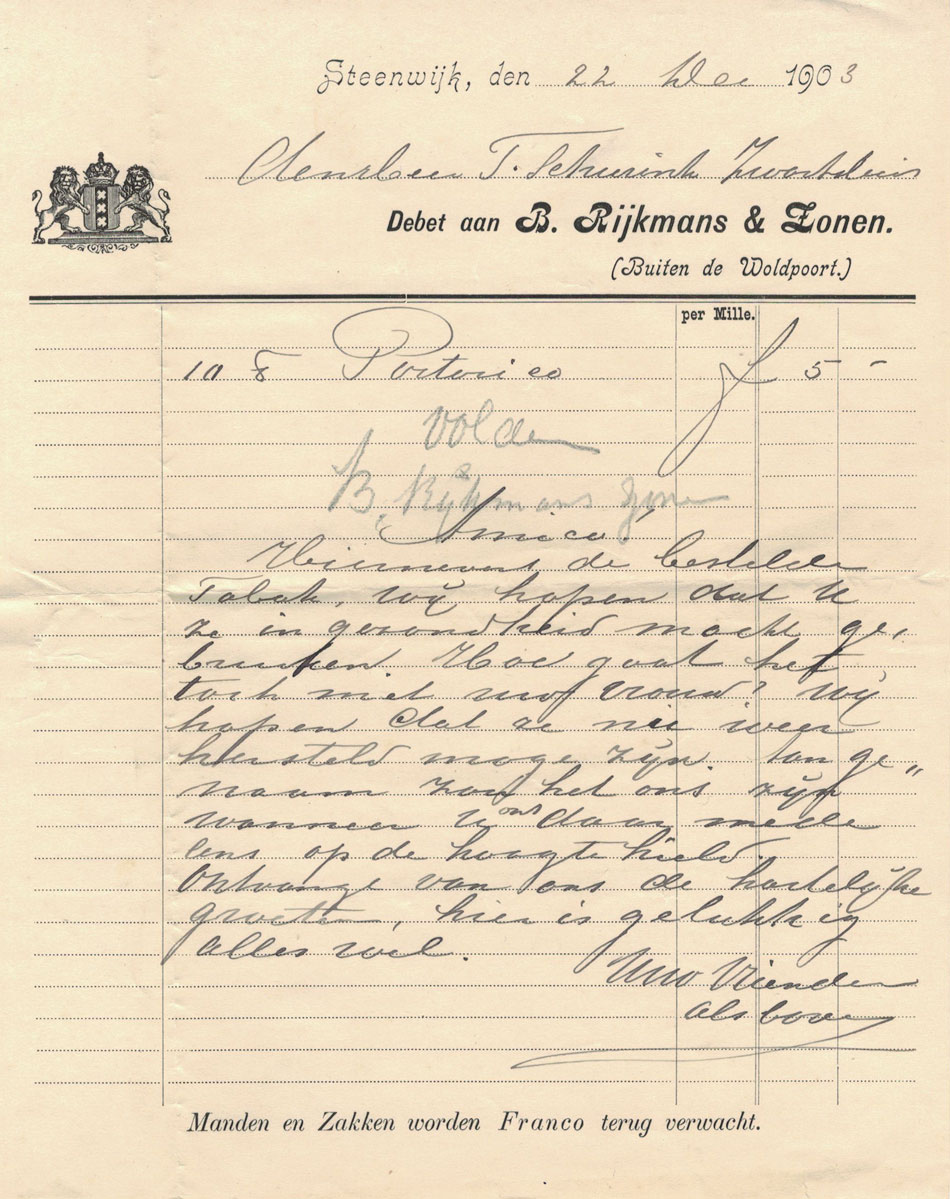 Steenwijk, den 22 Dec 1903
den Heer T. Schurink Zwartsluis
Debet aan B. Rijkmans & Zonen.
(Buiten de Woldpoort.)
per Mille.
10 ℔ Portorico f 5 -
Voldaan
B. Rijkmans Zonen
Amico!
Hiernevens de bestelde
Tabak, wij hopen dat U
ze in gezondheid mocht ge,
bruiken Hoe gaat het
toch met uw vrouw? wij
hopen dat ze nu weer
hersteld moge zijn. aan ge"
naam zou het ons zijn
wanneer U ons daar mede
eens op de hoogte hield.
Ontvange van ons de hartelijke
groeten, hier is gelukkig
alles wel.
Uw Vrienden
als boven
Manden en Zakken worden Franco terug verwacht.